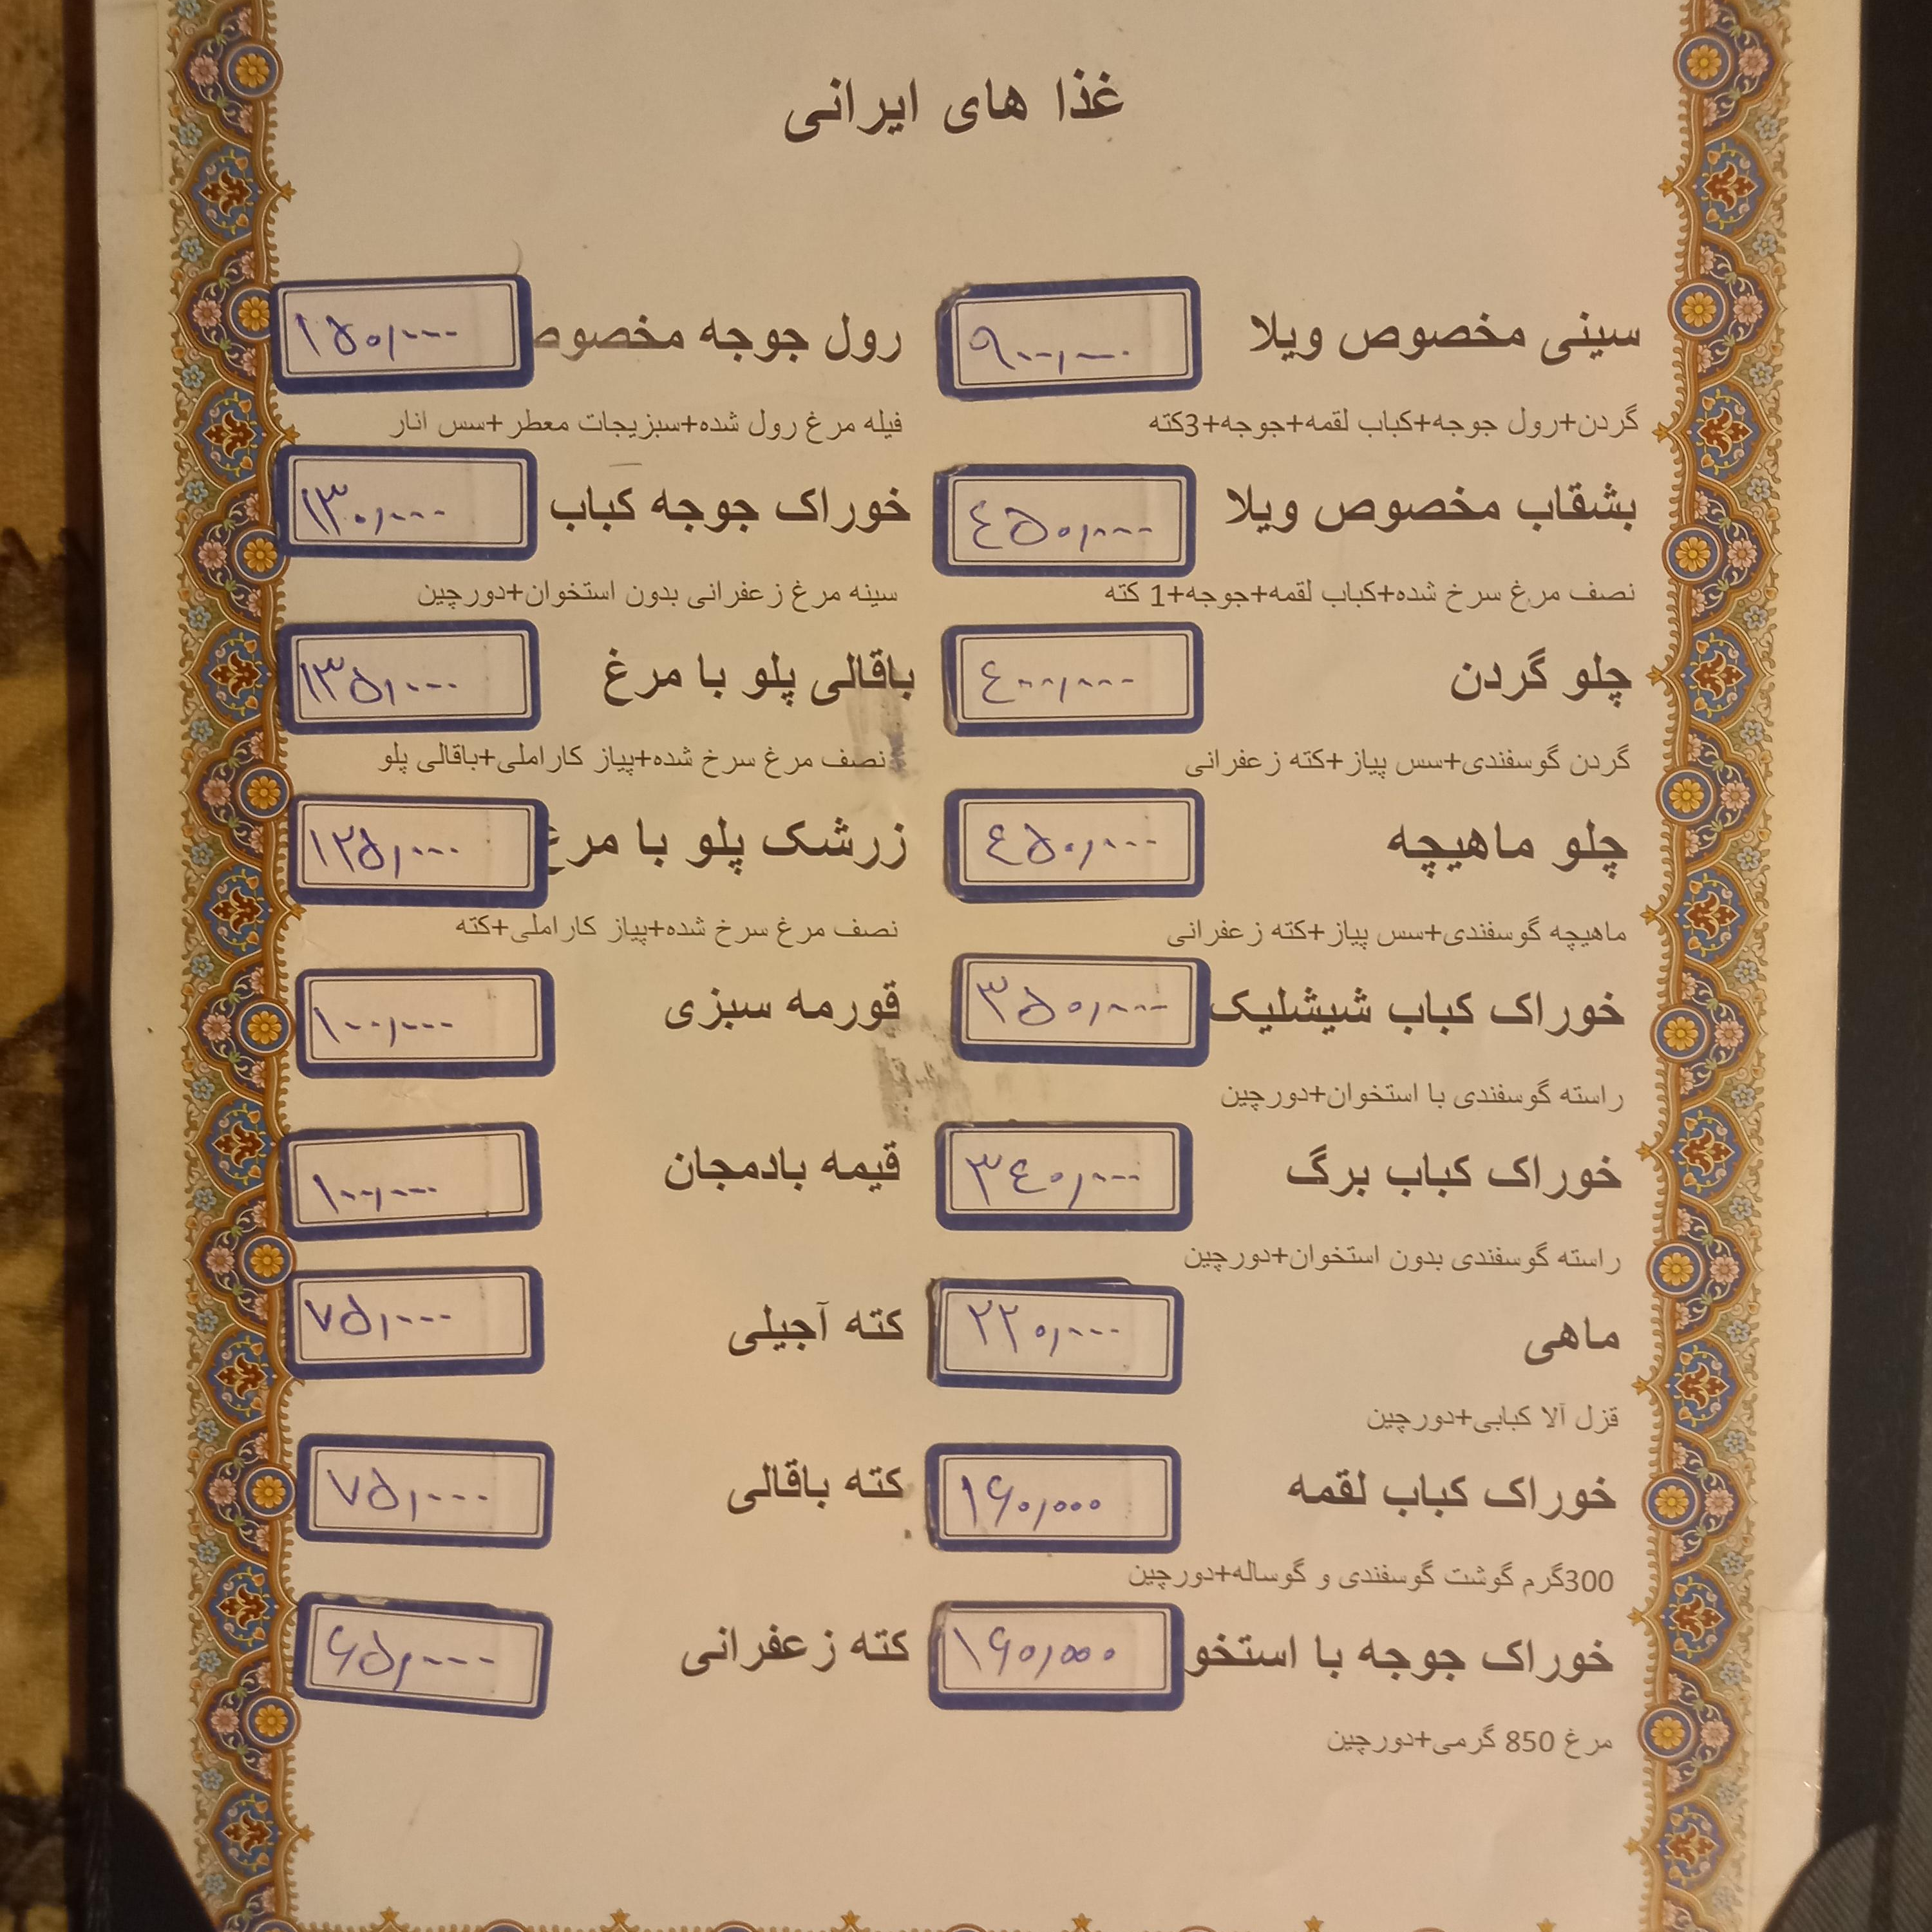 غذا های ایرانی
سینی مخصوص ویلا ۹۰۰,۰۰۰
گردن+رول جوجه+کباب لقمه+جوجه+3کته
بشقاب مخصوص ویلا ۴۵۰,۰۰۰
نصف مرغ سرخ شده+کباب لقمه+جوجه+1 کته
چلو گردن ۴۰۰,۰۰۰
گردن گوسفندی+سس پیاز+کته زعفرانی
چلو ماهیچه ۴۵۰,۰۰۰
ماهیچه گوسفندی+سس پیاز+کته زعفرانی
خوراک کباب شیشلیک ۳۵۰,۰۰۰
راسته گوسفندی با استخوان+دورچین
خوراک کباب برگ ۳۴۰,۰۰۰
راسته گوسفندی بدون استخوان+دورچین
ماهی ۲۲۰,۰۰۰
قزل آلا کبابی+دورچین
خوراک کباب لقمه ۱۶۰,۰۰۰
300گرم گوشت گوسفندی و گوساله+دورچین
خوراک جوجه با استخو ۱۶۰,۰۰۰
مرغ 850 گرمی+دورچین
رول جوجه مخصوص ۱۵۰,۰۰۰
فیله مرغ رول شده+سبزیجات معطر+سس انار
خوراک جوجه کباب ۱۳۰,۰۰۰
سینه مرغ زعفرانی بدون استخوان+دورچین
باقالی پلو با مرغ ۱۳۵,۰۰۰
نصف مرغ سرخ شده+پیاز کاراملی+باقالی پلو
زرشک پلو با مرغ ۱۲۵,۰۰۰
نصف مرغ سرخ شده+پیاز کاراملی+کته
قورمه سبزی ۱۰۰,۰۰۰
قیمه بادمجان ۱۰۰,۰۰۰
کته آجیلی ۷۵,۰۰۰
کته باقالی ۷۵,۰۰۰
کته زعفرانی ۶۵,۰۰۰